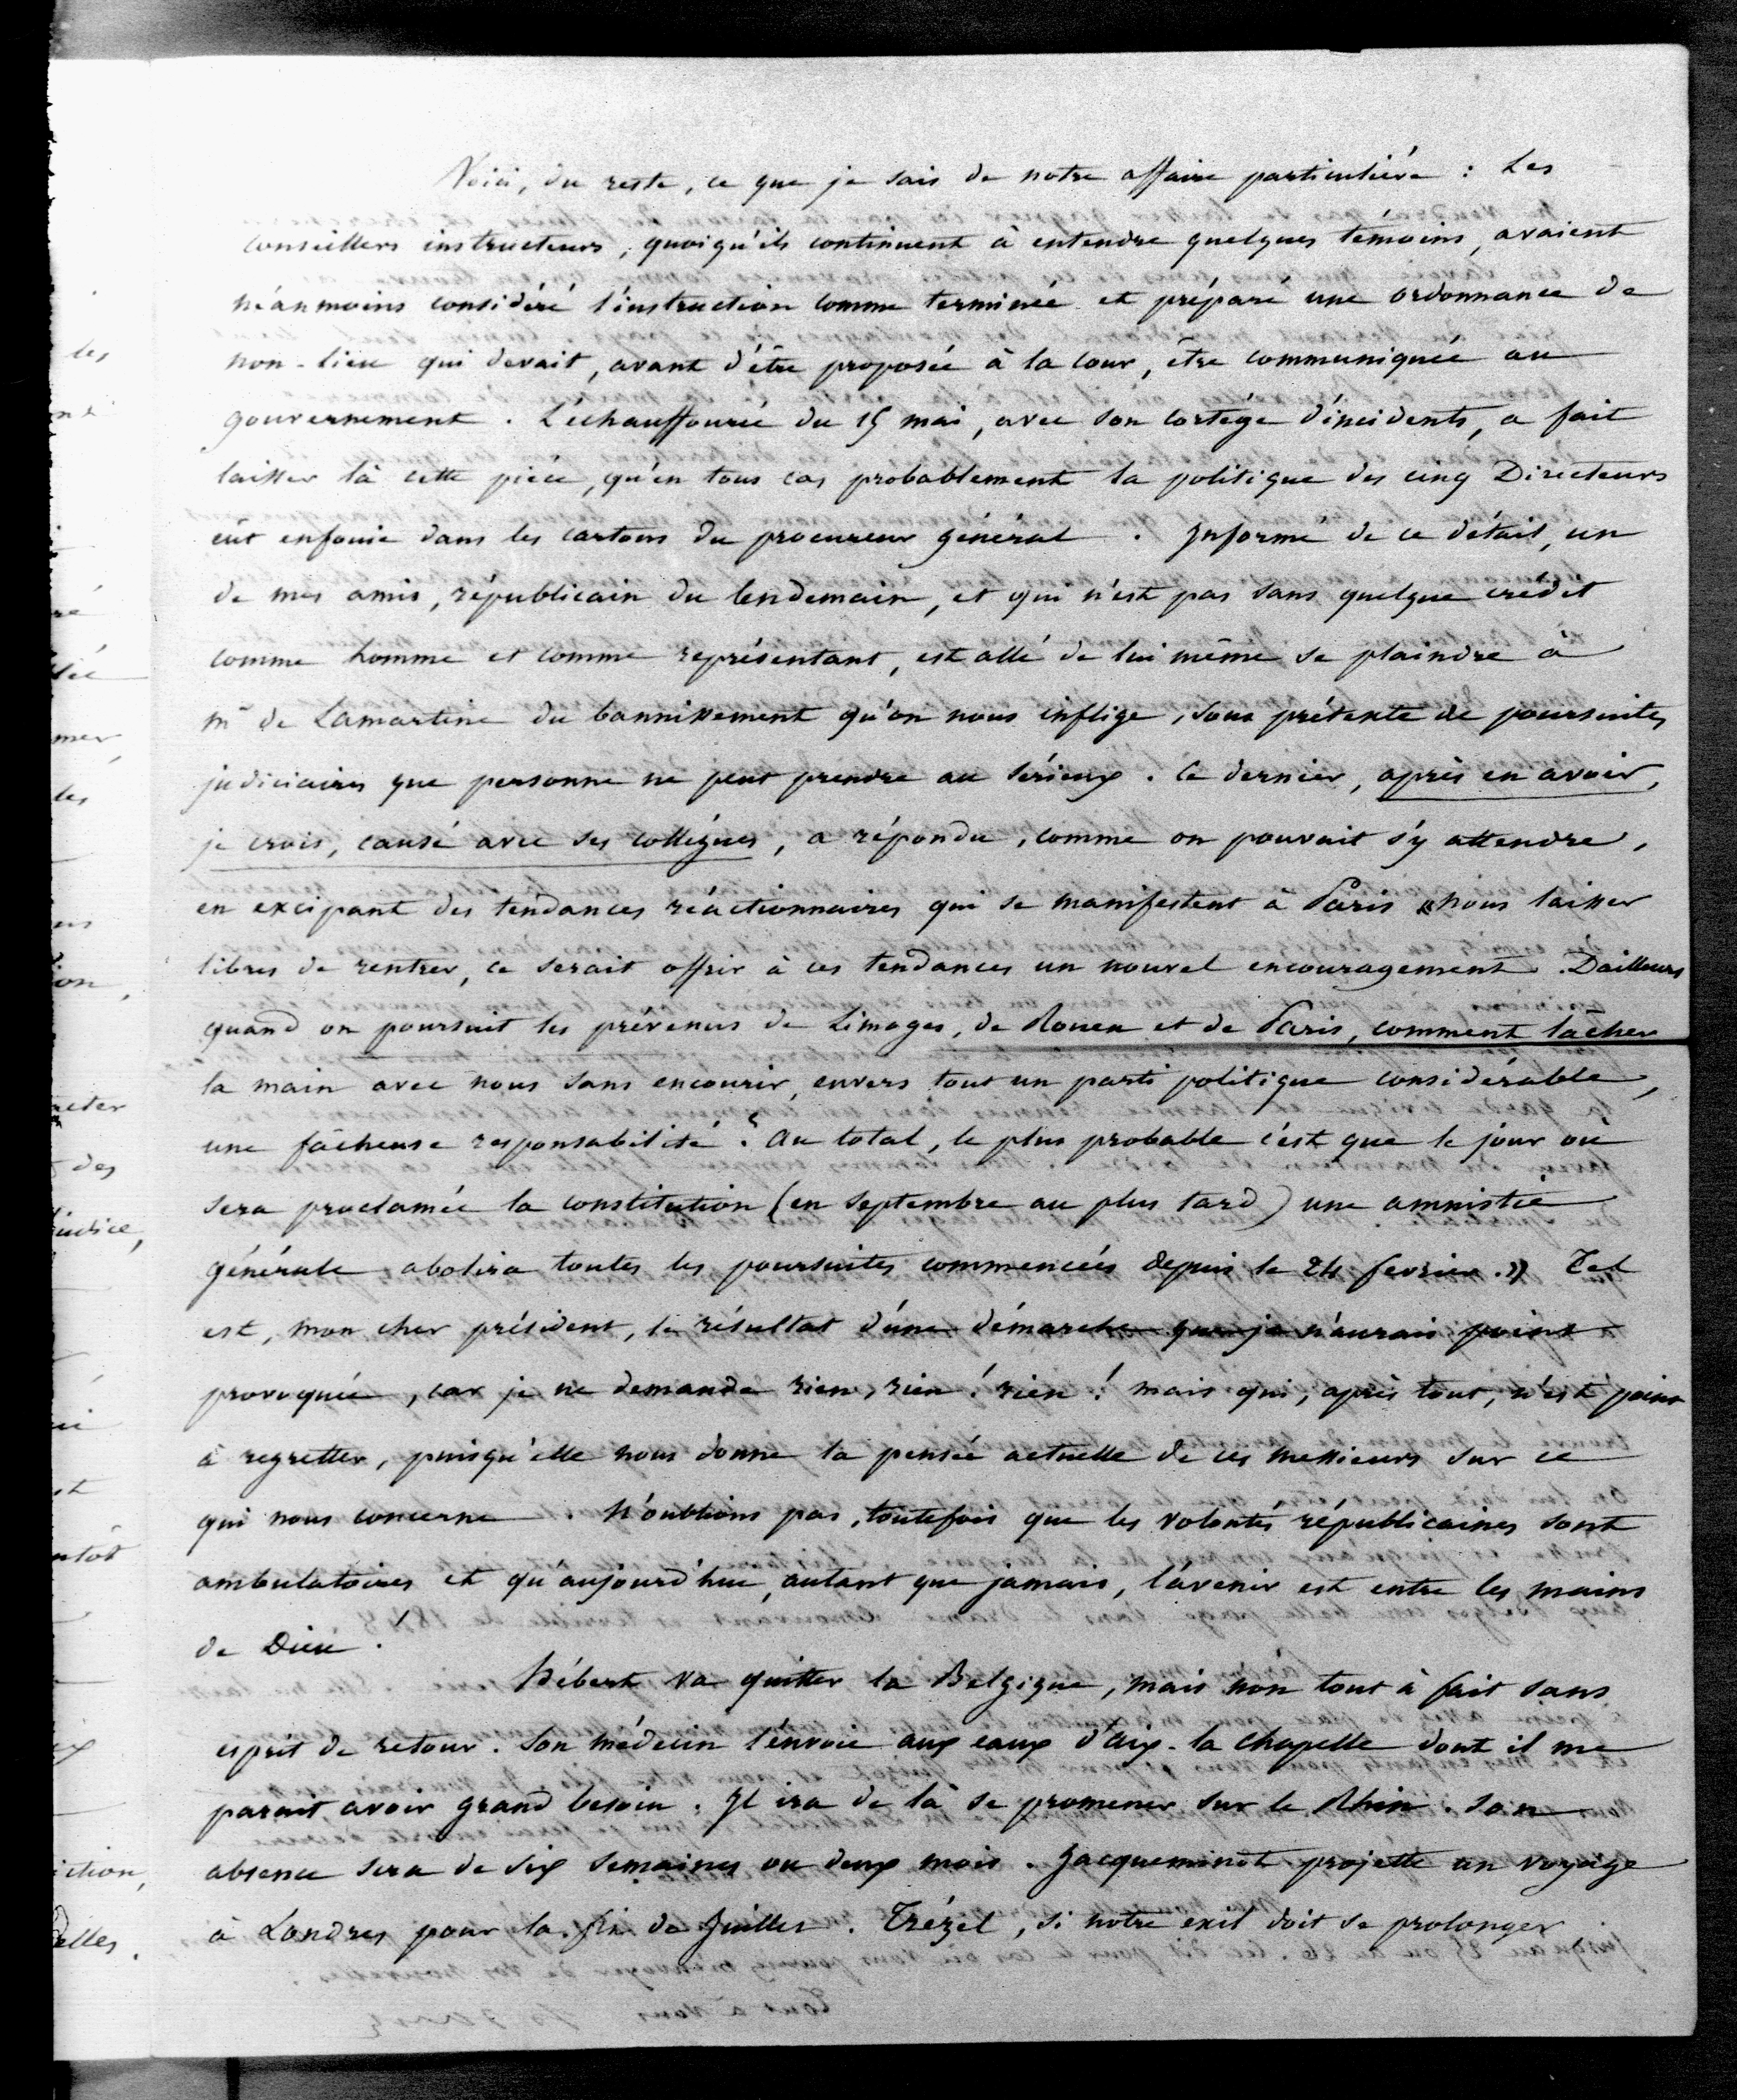 Voici, du reste, ce que je sais de notre affaire particulière : Les
conseillers instructeurs, quoiqu'ils continuent à entendre quelques témoins, avaient
néanmoins considéré l'instruction comme terminée et préparé une ordonnance de
non-lieu qui devait, avant d'être proposée à la cour, être communiquée au
gouvernement. L'échauffourée du 15 mai, avec son cortège d'incidents, a fait
laisser là cette pièce, qu'en tous cas probablement la politique des cinq Directeurs
eût enfouie dans les cartons du procureur général. Informé de ce détail, un
de mes amis, républicain du lendemain, et qui n'est pas sans quelque crédit
comme homme et comme représentant, est allé de lui même se plaindre à
mr de Lamartine du bannissement qu'on nous inflige, sous prétexte de poursuites
judiciaires que personne ne peut prendre au sérieux. Ce dernier, après en avoir,
je crois, causé avec ses collègues, a répondu, comme on pouvait s'y attendre,
en excipant des tendances réactionnaires qui se manifestent à Paris « nous laisser
libres de rentrer, ce serait offrir à ces tendances un nouvel encouragement. D'ailleurs
quand on poursuit les prévenus de Limoges, de Rouen et de Paris, comment lâcher
la main avec nous sans encourir, envers tout un parti politique considérable,
une fâcheuse responsabilité ? Au total, le plus probable c'est que le jour où
sera proclamée la constitution (en septembre au plus tard) une amnistie
générale abolira toutes les poursuites commencées depuis le 24 fevrier. » Tel
est, mon cher président, le résultat d'une démarche que je n'aurais point
provoquée, car je ne demande rien, rien ! rien ! mais qui, après tout, n'est point
à regretter, puisqu'elle nous donne la pensée actuelle de ces messieurs sur ce
qui nous concerne. N'oublions pas, toutefois que les volontés républicaines sont
ambulatoires et qu'aujourd'hui, autant que jamais, l'avenir est entre les mains
de Dieu.
Hébert va quitter la Belgique, mais non tout à fait sans
esprit de retour. Son médecin l'envoie aux eaux d'aix-la chapelle dont il me
parait avoir grand besoin. Il ira de là se promener sur le Rhin. Son
absence sera de six semaines ou deux mois. Jacqueminot projette un voyage
à Londres pour la fin de Juillet. Trézel, si notre exil doit se prolonger